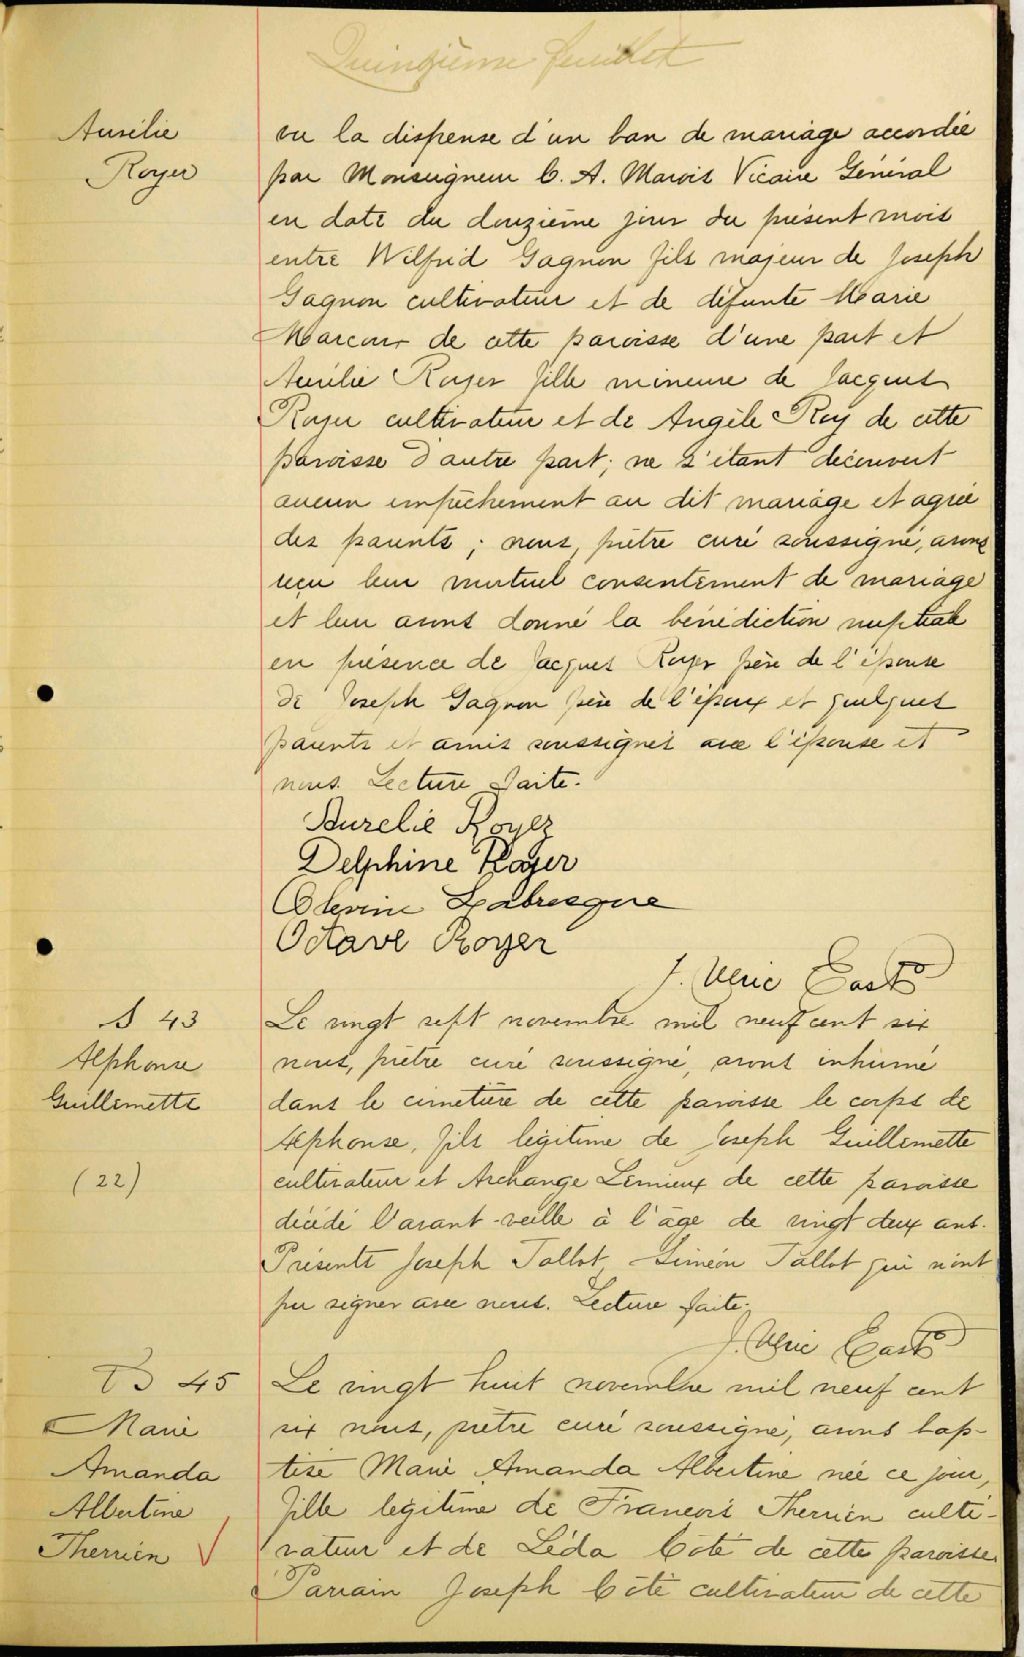 Quinzième feuillet
Aurélie
Royer
vu la dispense d'un ban de mariage accordée
par Monseigneur C. A. Marois Vicaire Général
en date du douzième jour du présent mois
entre Wilfrid Gagnon fils majeur de Joseph
Gagnon cultivateur et de défunte Marie
Marcoux de cette paroisse d'une part et
Aurélie Royer fille mineure de Jacques
Royer cultivateur et de Angèle Roy de cette
paroisse d'autre part; ne s'étant découvert
aucun empêchement au dit mariage et agrée
des parents; nous, prêtre curé soussigné, avons
reçu leur mutuel consentement de mariage
et leur avons donné la bénédiction nuptiale
en présence de Jacques Royer père de l'épouse
de Joseph Gagnon père de l'époux et quelques
parents et amis soussignés avec l'épouse et
nous. Lecture faite.
Aurelie Royer
Delphine Royer
Labresque
Octave Royer
J. Ulric East
S 43
Alphonse
Guillemette
(22)
Le vingt sept novembre mil neuf cent six
nous, prêtre curé soussigné, avons inhumé
dans le cimetière de cette paroisse le corps de
Alphonse, fils légitime de Joseph Guillemette
cultivateur et Archange Lemieux de cette paroisse
décédé l'avant-veille à l'âge de vingt deux ans.
Présents Joseph Tallot, Siméon Tallot qui n'ont
pu signer avec nous. Lecture faite.
J. Ulric East
B 45
Marie
Amanda
Albertine
Therrien
Le vingt huit novembre mil neuf cent
six nous, prêtre curé soussigné, avons bap-
tisé Marie Amanda Albertine née ce jour,
fille légitime de François Therrien culti-
vateur et de Léda Côté de cette paroisse.
Parrain Joseph Côté cultivateur de cette